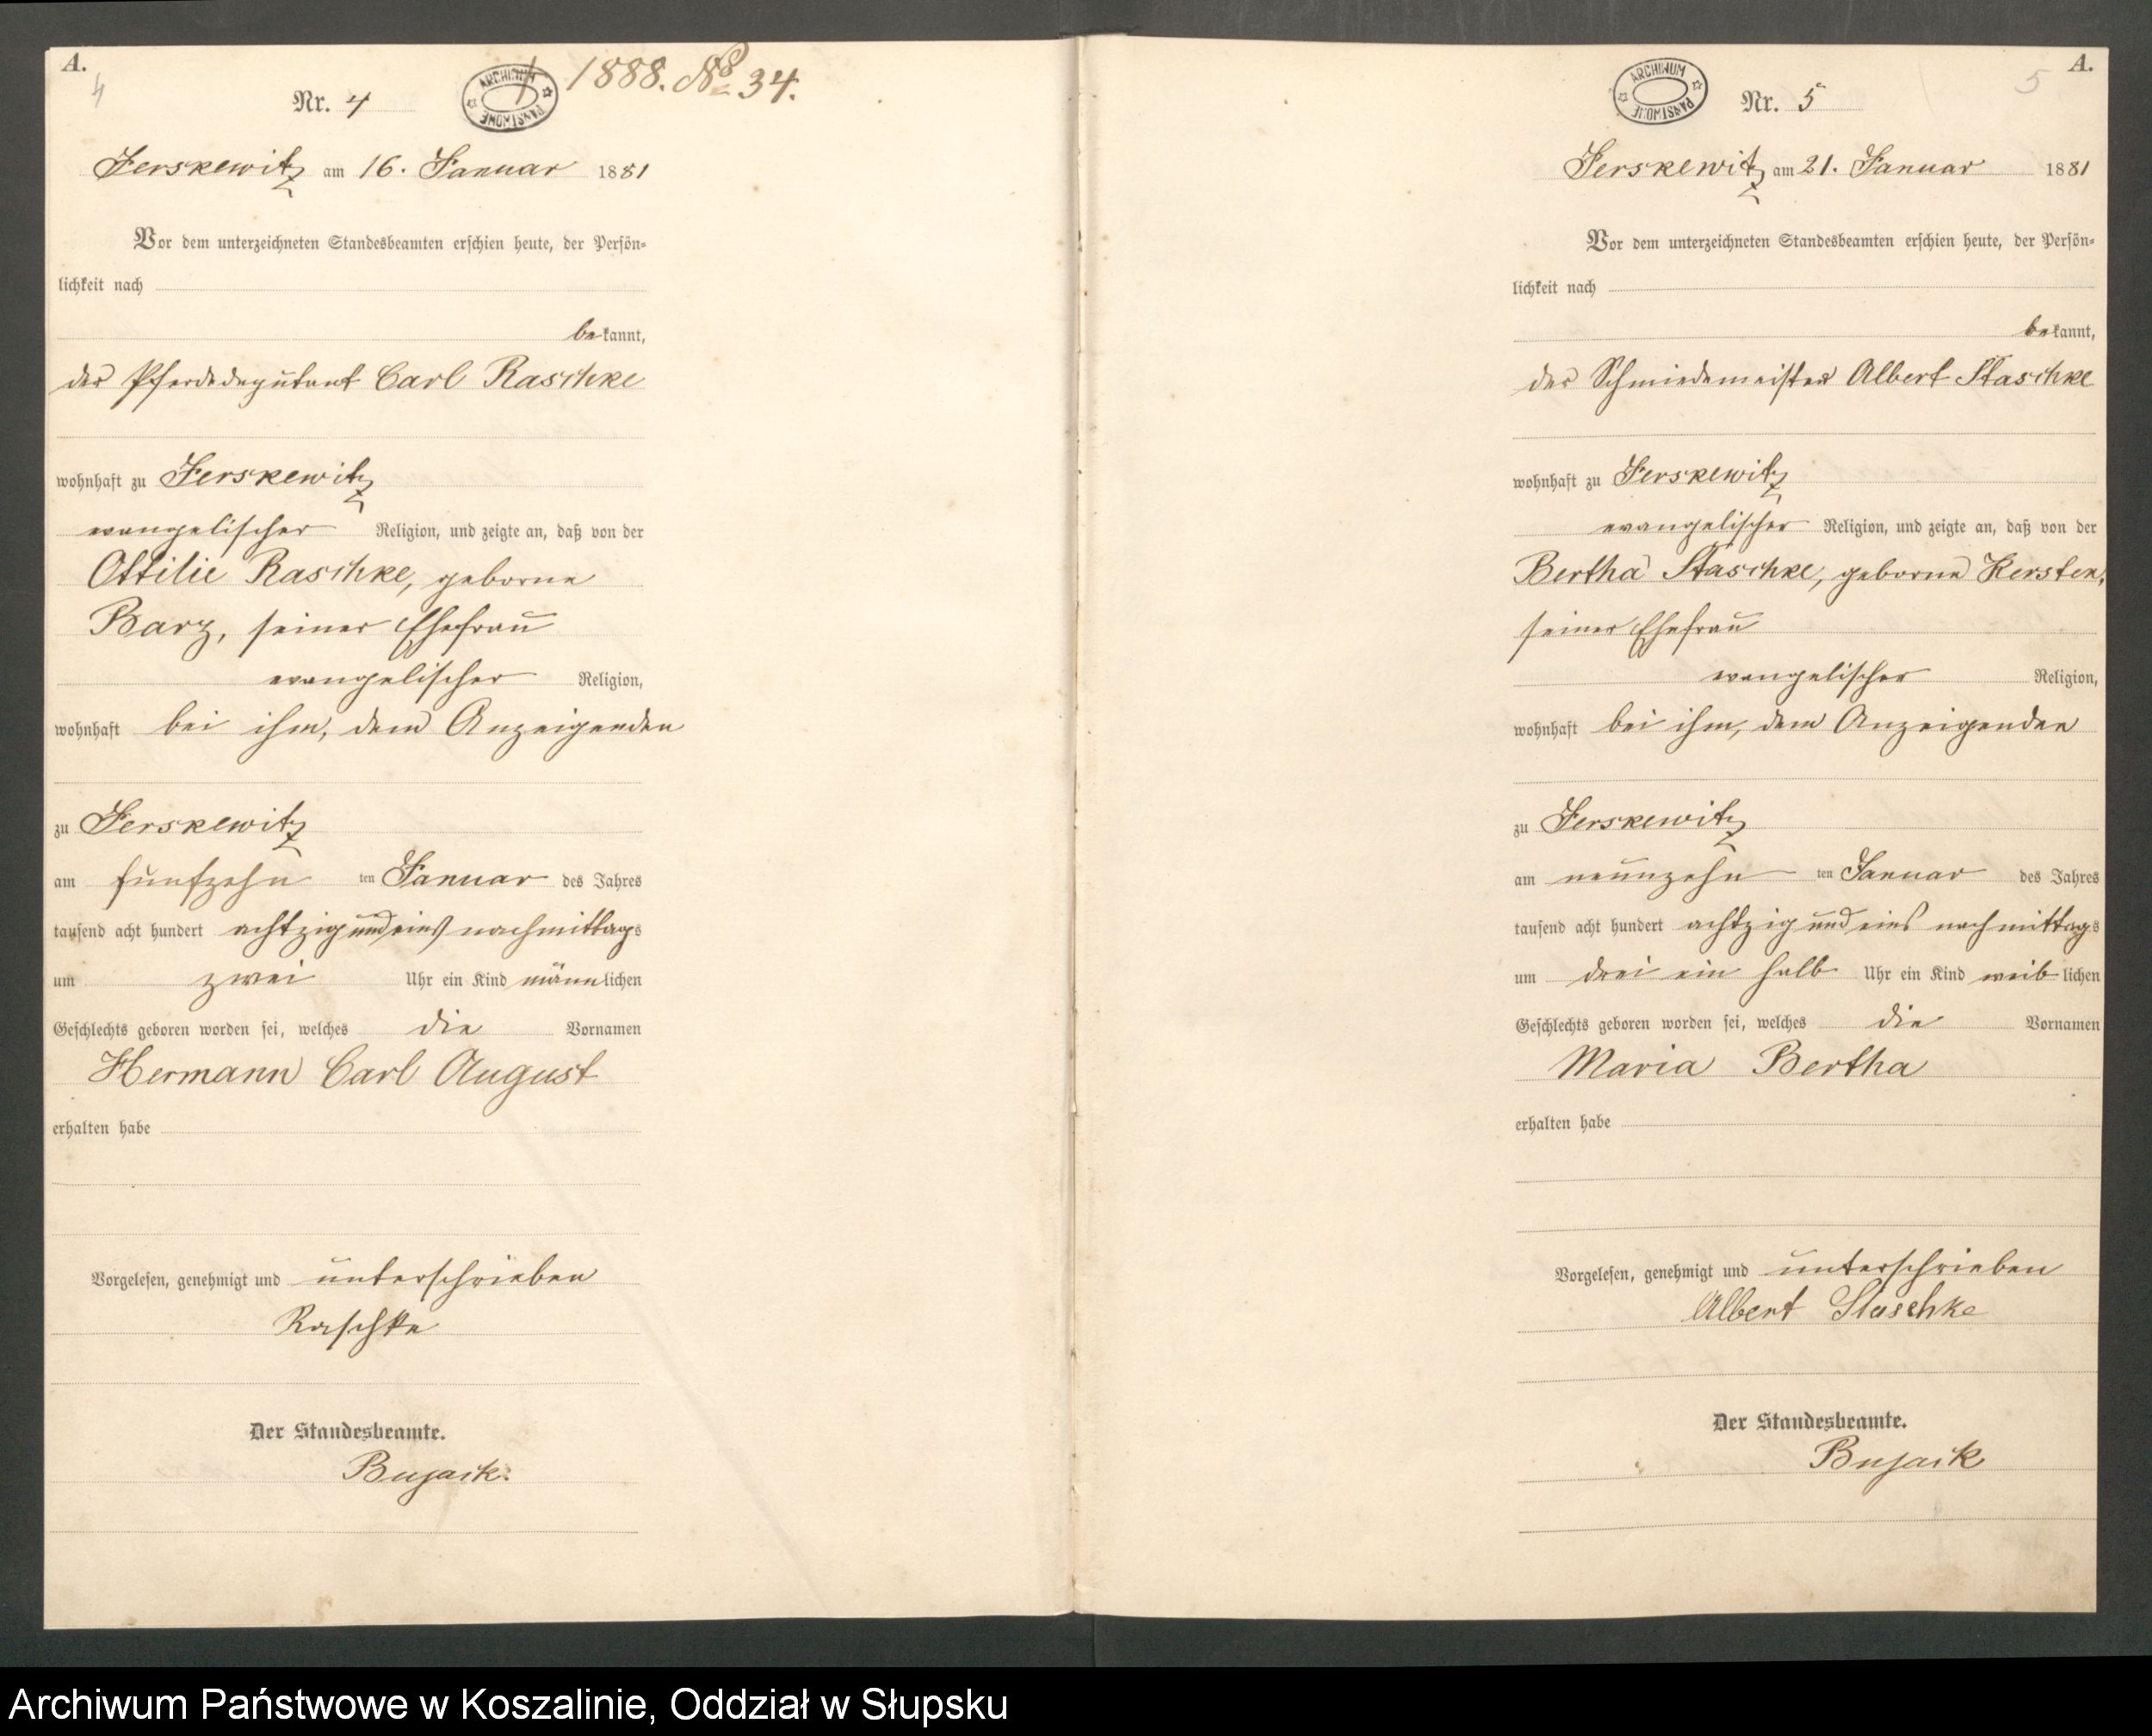 A.
4
Nr. 4
ARCHIWUM PAŃSTWOWE
† 1888. No 34.
Jerskewitz am 16. Januar 1881
Vor dem unterzeichneten Standesbeamten erschien heute, der Persön-
lichkeit nach
bekannt,
der Pferdedeputant Carl Raschke
wohnhaft zu Jerskewitz
evangelischer Religion, und zeigte an, daß von der
Ottilie Raschke, geborne
Barz, seiner Ehefrau
evangelischer Religion,
wohnhaft bei ihm, dem Anzeigenden
zu Jerskewitz
am funfzehn ten Januar des Jahres
tausend acht hundert achtzig und eins nachmittags
um zwei Uhr ein Kind männlichen
Geschlechts geboren worden sei, welches die Vornamen
Hermann Carl August
erhalten habe
Vorgelesen, genehmigt und unterschrieben
Raschke
Der Standesbeamte.
Bujack.
A.
5
ARCHIWUM PAŃSTWOWE
Nr. 5
Jerskewitz am 21. Januar 1881
Vor dem unterzeichneten Standesbeamten erschien heute, der Persön-
lichkeit nach
bekannt,
der Schmiedemeister Albert Staschke
wohnhaft zu Jerskewitz
evangelischer Religion, und zeigte an, daß von der
Bertha Staschke, geborne Kersten,
seiner Ehefrau
evangelischer Religion,
wohnhaft bei ihm, dem Anzeigenden
zu Jerskewitz
am neunzehn ten Januar des Jahres
tausend acht hundert achtzig und eins nachmittags
um drei ein halb Uhr ein Kind weiblichen
Geschlechts geboren worden sei, welches die Vornamen
Maria Bertha
erhalten habe
Vorgelesen, genehmigt und unterschrieben
Albert Staschke
Der Standesbeamte.
Bujack
Archiwum Państwowe w Koszalinie, Oddział w Słupsku